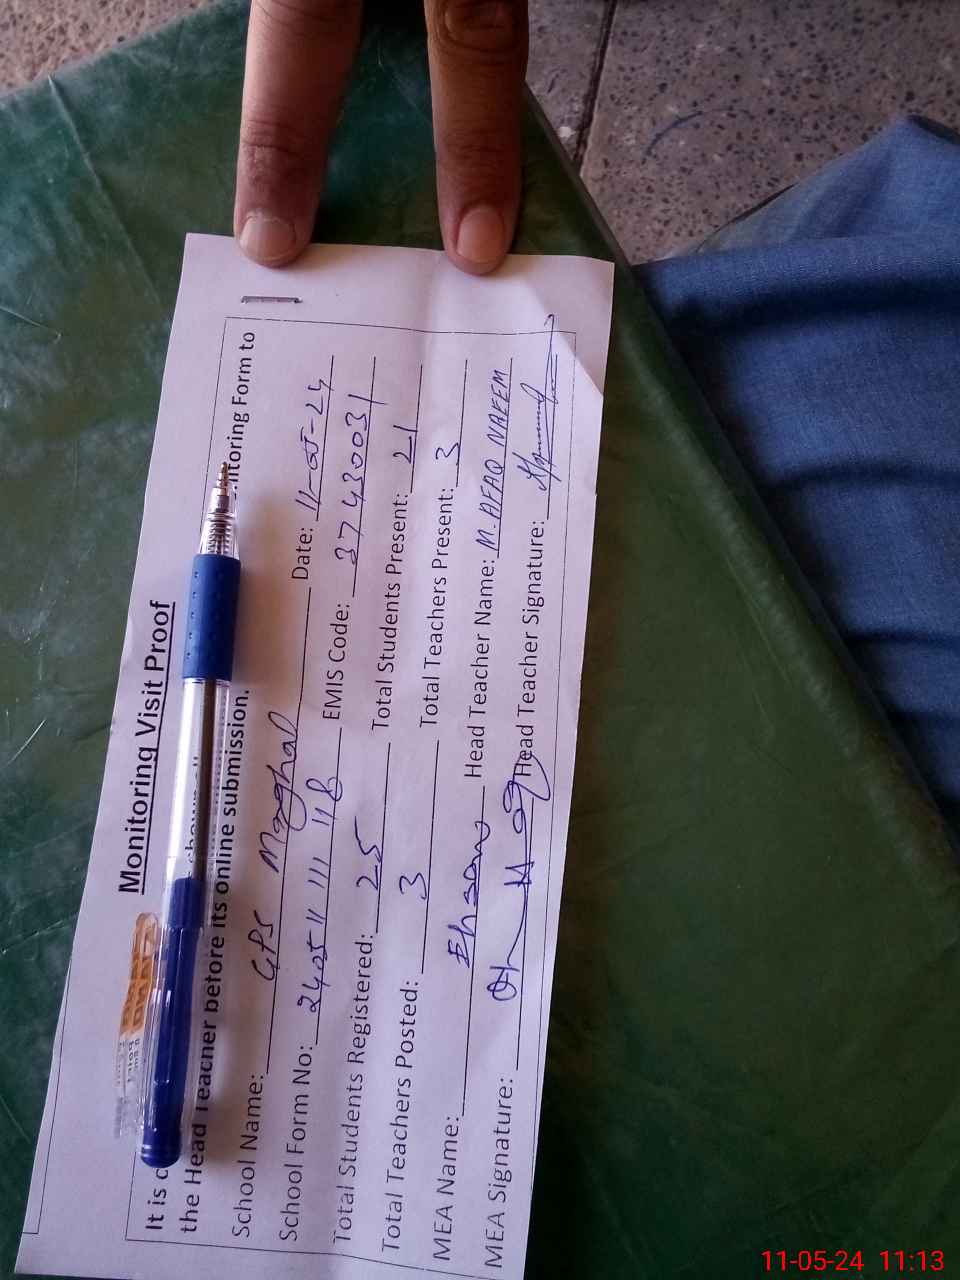 Monitoring Visit Proof
It is nitoring Form to
the Head Teacher before its online submission.
School Name: GPS Maghal Date: 11-05-24
School Form No: 24051111111B EMIS Code: 37430031
Total Students Registered: 25 Total Students Present: 21
Total Teachers Posted: 3 Total Teachers Present: 3
MEA Name: Ehsan Head Teacher Name: M. AFAQ NAEEM
MEA Signature: Head Teacher Signature:
11-05-24 11:13